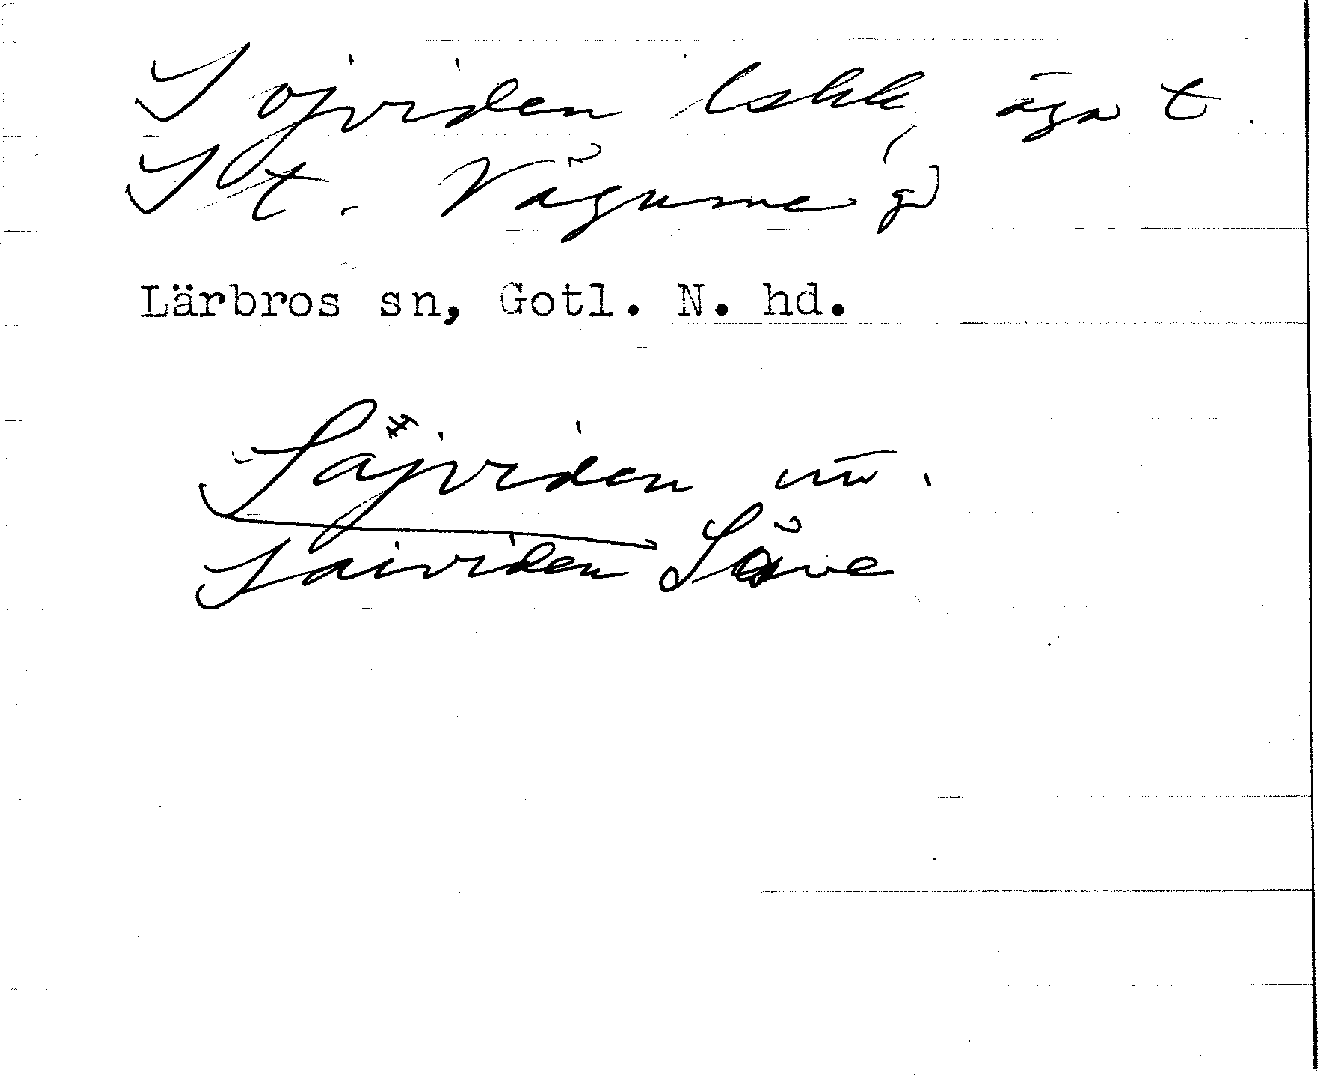 Sojviden lskk, äga t.
St. Vägume gd
Lärbros sn, Gotl. N. hd.
Säjviden
Saividen Säve